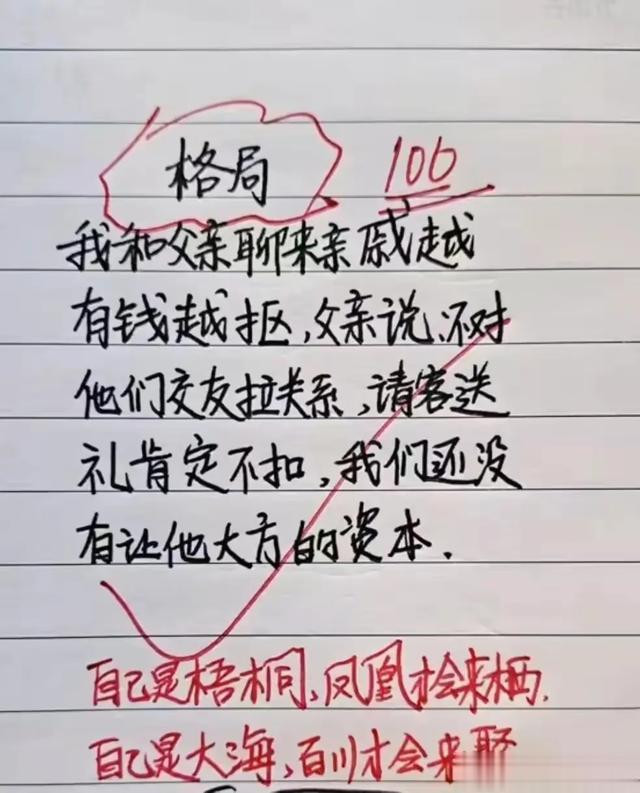 格局
100
我和父亲聊来亲戚越
有钱越抠,父亲说,不对
他们交友拉关系,请客送
礼肯定不扣,我们还没
有让他大方的资本.
自己是梧桐,凤凰才会来栖.
自己是大海,百川才会来聚